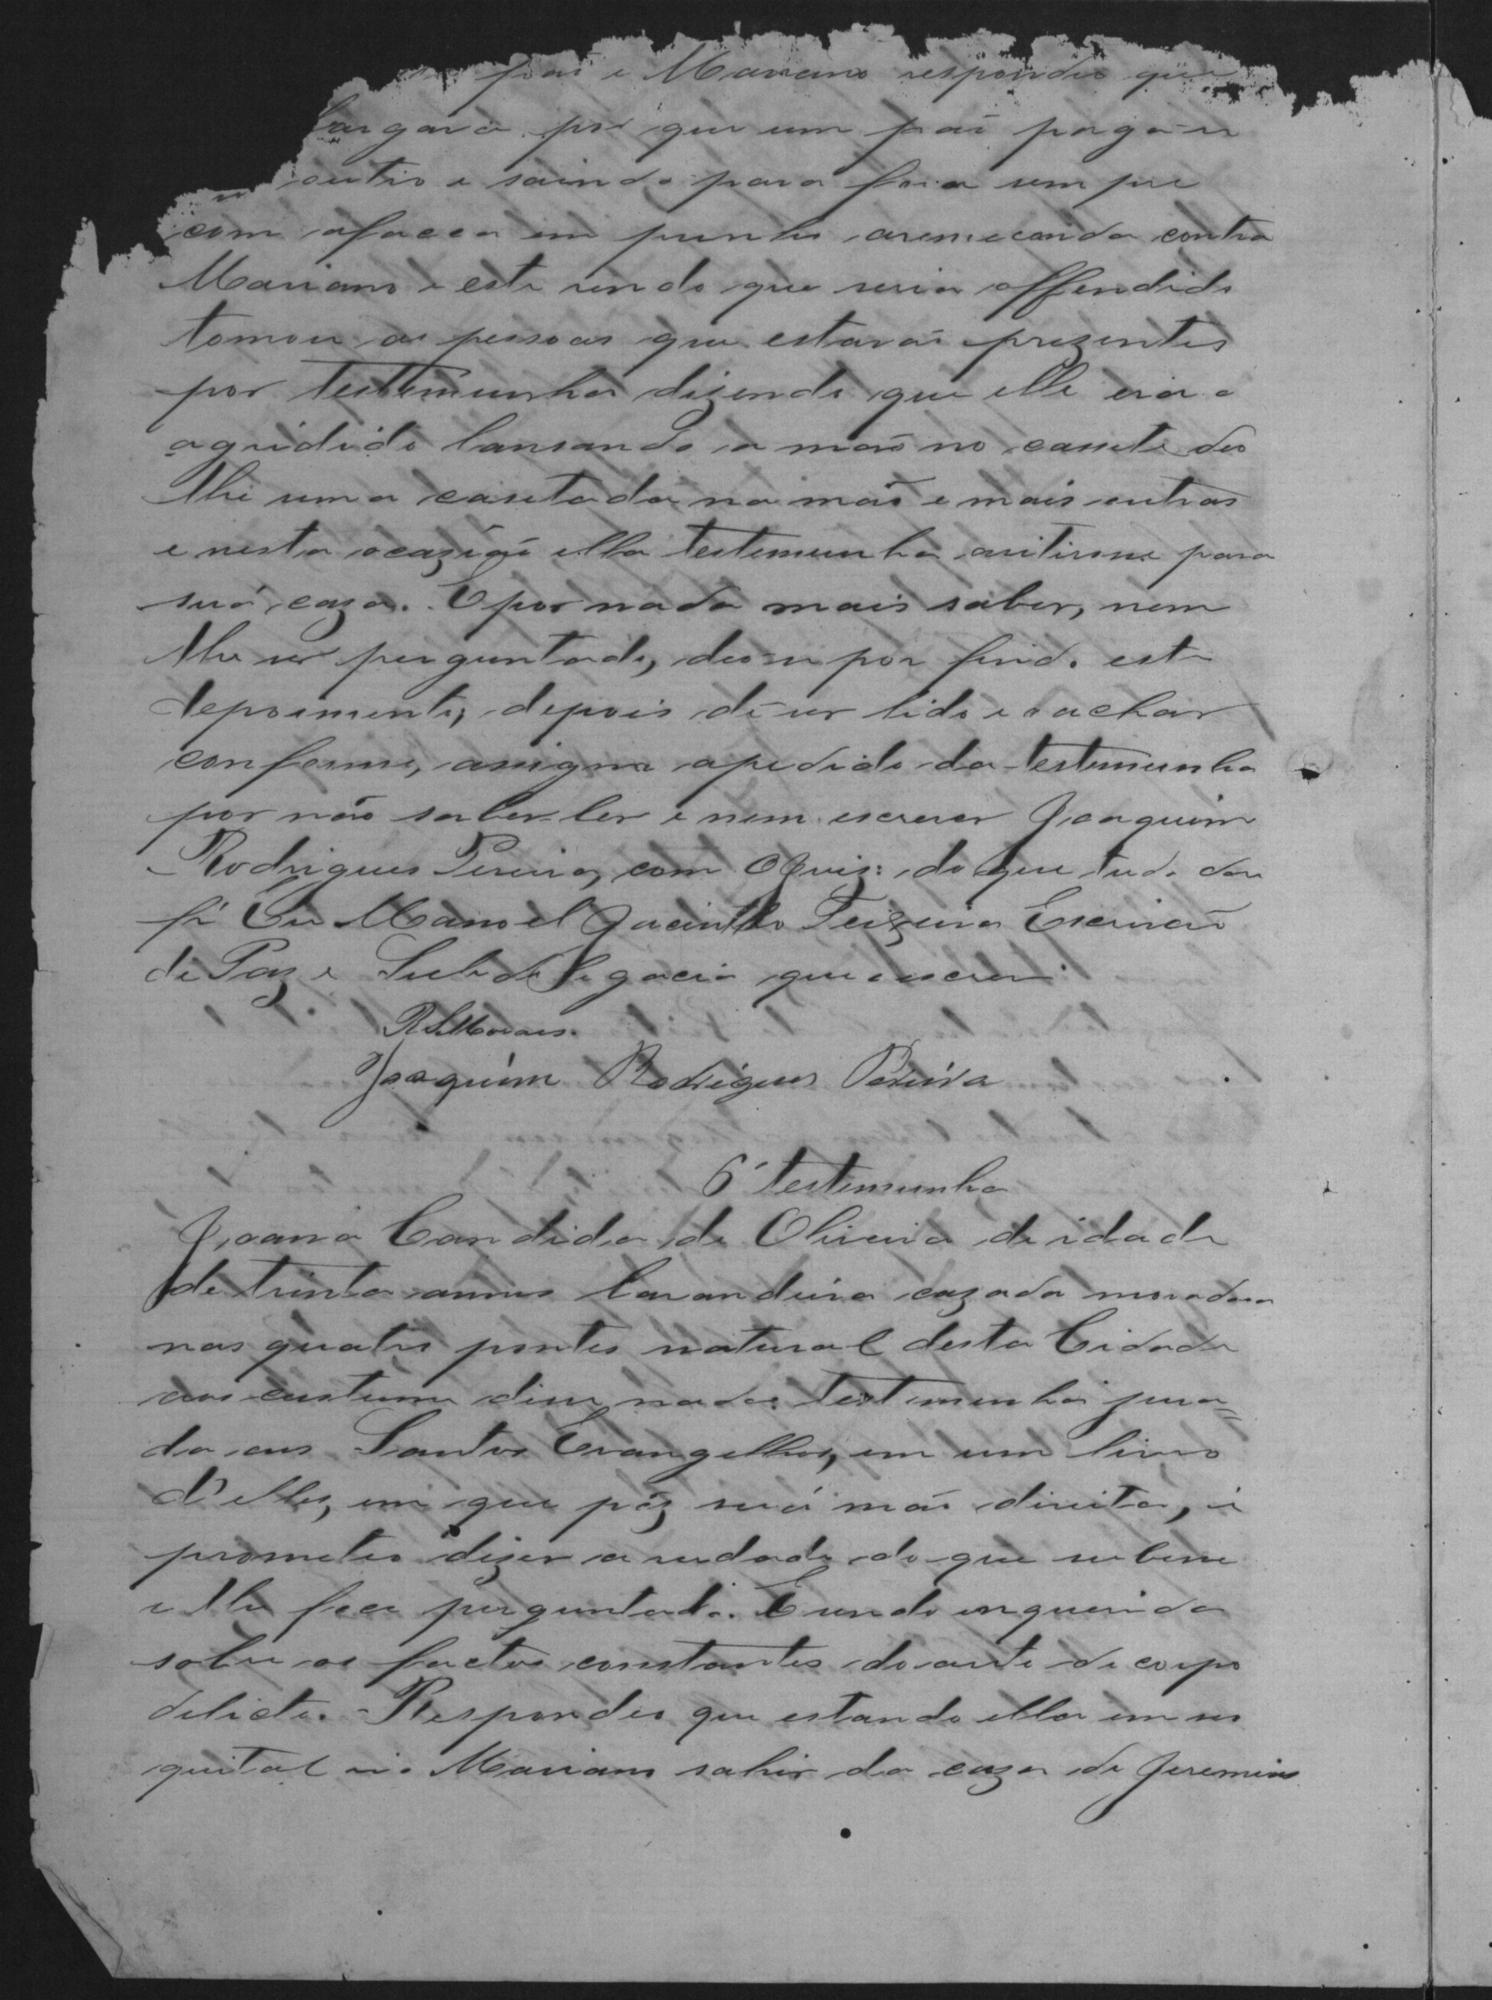 páo e Mariano respondeo que
largava por que um páo pagava
outro e saindo para fora sempre
com afacca em punho aremecando contra
Mariano e este vendo que seria offendido
tomou as pessoas que estavão prezentes
por testemunha dizendo que elle era o
agridido lansando a mão no cassete deo
lhe uma casetada na mão e mais outras
e nesta ocazião ella testemunha para
suá caza. E por nada mais saber, nem
lhe ser perguntado, deo-se por findo este
depoimento, depois de ser lido e o achar
conforme, assigna apedido da testemunha
por não saber ler e nem escrever Joaquim
Rodrigues Pereira, com o Juiz: do que tudo dou
fé Eu Manoel Jacintho Teixeira Escrivão
de Paz e Subdelegacia que o escrevi
R S Moraes.
Joaquim Rodrigues Pereira
6ª testemunha
Joanna Candida de Oliveira de idade
de trinta annos lavandeira cazada moradora
nas quatro pontes natural desta Cidade
aos custume disse nada: testemunha jura=
da aos Santos Evangelhos, em um livro
d'elles, em que pôz suá mão direita, e
prometeo dizer a verdade do que soubesse
e lhe foce perguntado. E sendo inquerida
sobre os factos constantes do auto de corpo
delicto. Respondeo que estando ella em seo
quital vio Mariano sahir da caza de Jeremias